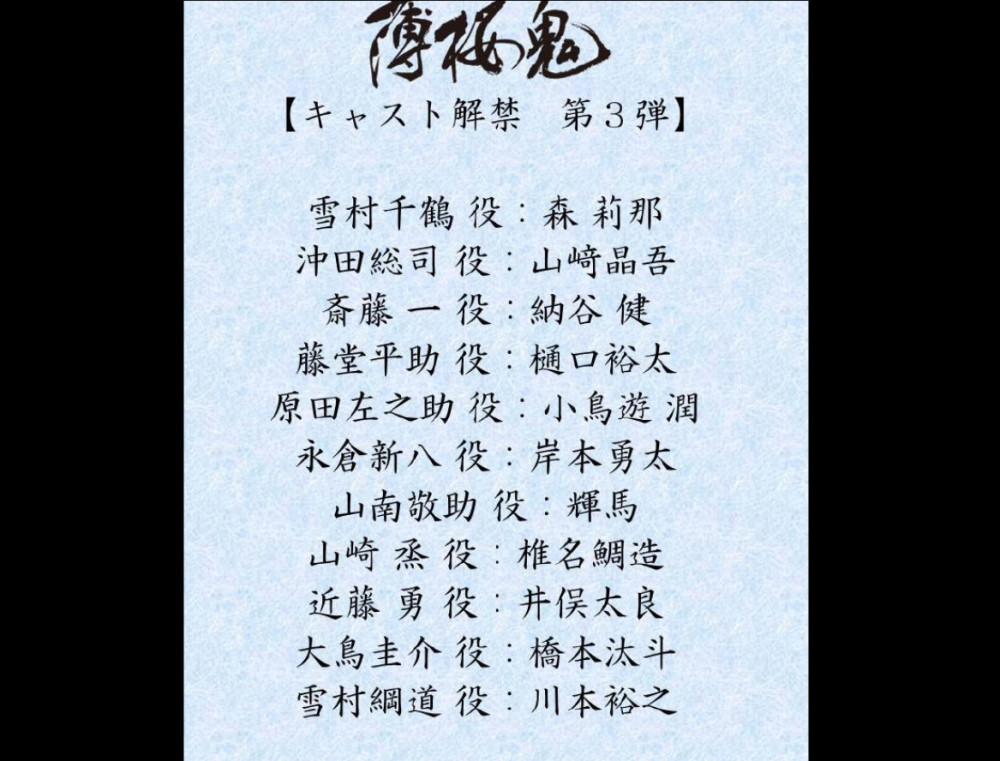 薄桜鬼
【キャスト解禁　第３弾】
雪村千鶴 役：森 莉那
沖田総司 役：山﨑晶吾
斎藤 一 役：納谷 健
藤堂平助 役：樋口裕太
原田左之助 役：小鳥遊 潤
永倉新八 役：岸本勇太
山南敬助 役：輝馬
山崎 烝 役：椎名鯛造
近藤 勇 役：井俣太良
大鳥圭介 役：橋本汰斗
雪村綱道 役：川本裕之